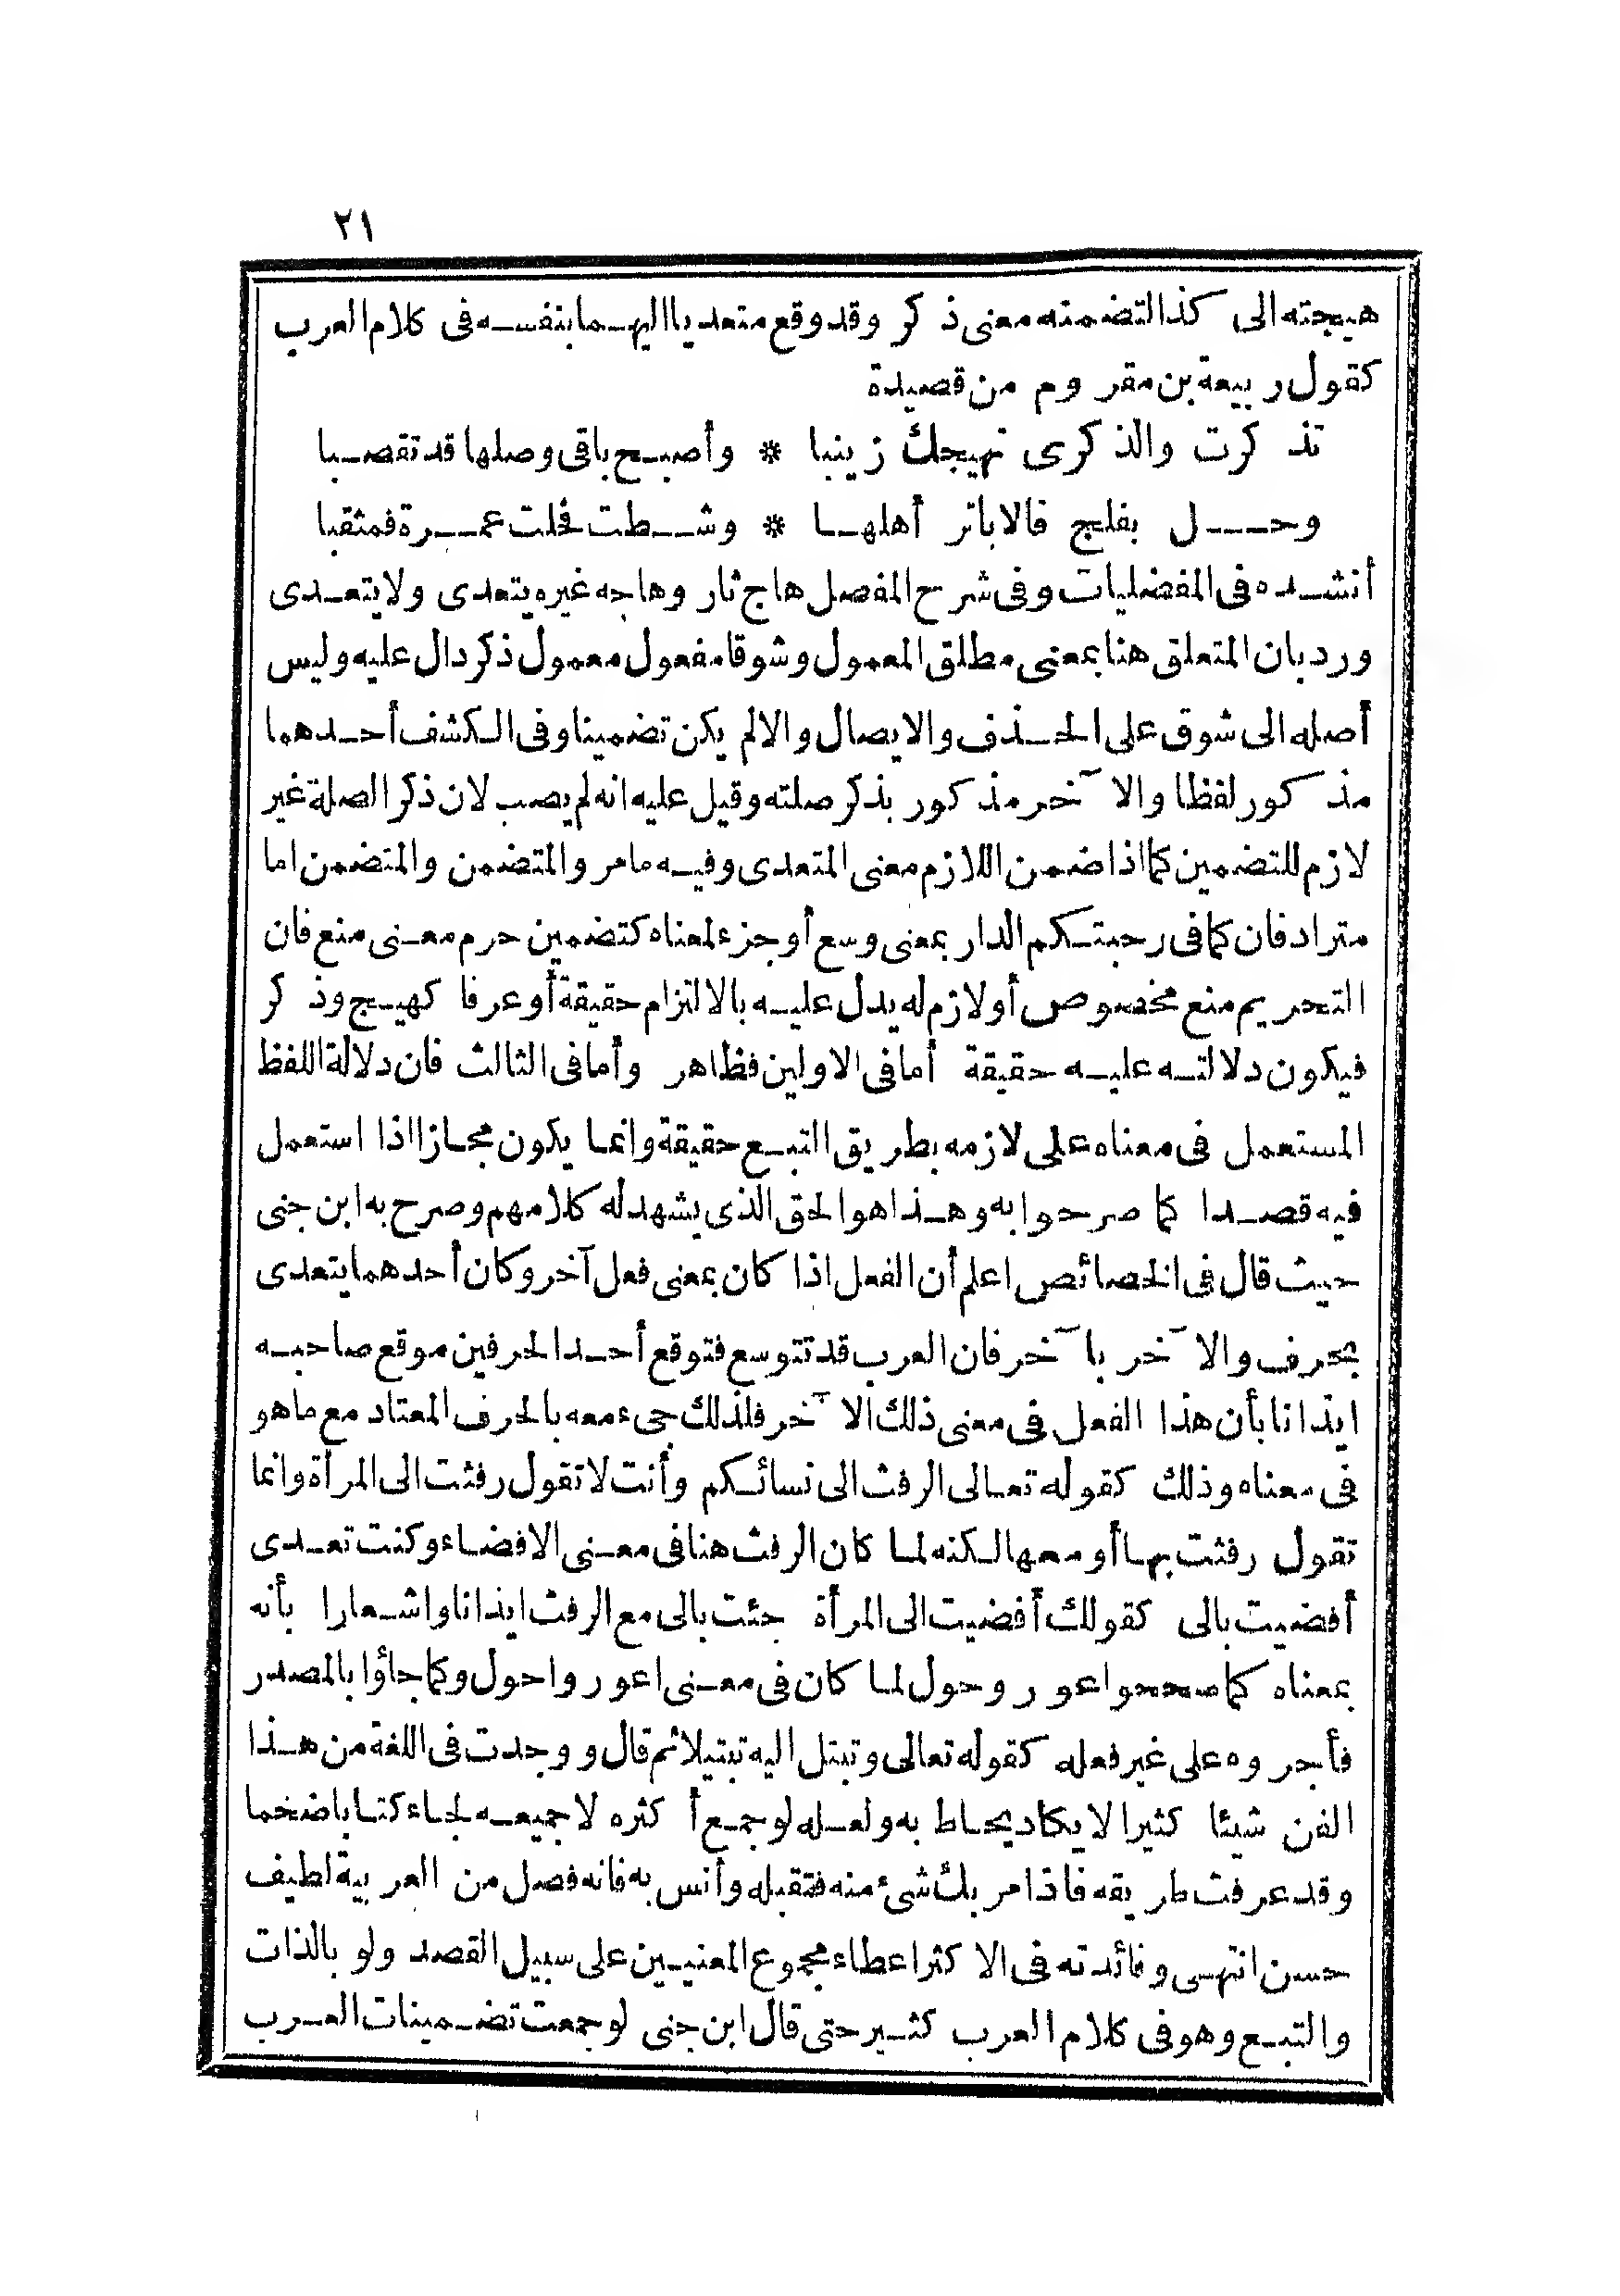 ٢١
هيجته الى كذا لتضمنه معنى ذكر وقد وقع متعديا اليهما بنفسه فى كلام العرب
كقول ربيعة بن مقروم من قصيدة
تذكرت والذكرى تهيجك زينبا * وأصبح باقى وصلها قد تقصبا
وحل بفلج فالاباتر أهلها * وشطت فحلت عمرة فمثقبا
أنشده فى المفضليات وفى شرح المفصل هاج ثار وهاجه غيره يتعدى ولا يتعدى
ورد بان المتعلق هنا بمعنى مطلق المعمول وشوقا مفعول معمول ذكر دال عليه وليس
أصله الى شوق على الحذف والايصال والا لم يكن تضمينا وفى الكشف أحدهما
مذكور لفظا والآخر مذكور بذكر صلته وقيل عليه انه لم يصب لان ذكر الصلة غير
لازم للتضمين كما اذا ضمن اللازم معنى المتعدى وفيه ما مر والمتضمن والمتضمن اما
مترادفان كما فى رحبتكم الدار بمعنى وسع أو جزء لمعناه كتضمين حرم معنى منع فان
التحريم منع مخصوص أو لازم له يدل عليه بالالتزام حقيقة أو عرفا كهيج وذكر
فيكون دلالته عليه حقيقة أما فى الاولين فظاهر وأما فى الثالث فان دلالة اللفظ
المستعمل فى معناه على لازمه بطريق التبع حقيقة وانما يكون مجازا اذا استعمل
فيه قصدا كما صرحوا به وهذا هو الحق الذى يشهد له كلامهم وصرح به ابن جنى
حيث قال فى الخصائص اعلم أن الفعل اذا كان بمعنى فعل آخر وكان أحدهما يتعدى
بحرف والآخر بآخر فان العرب قد تتوسع فتوقع أحد الحرفين موقع صاحبه
ايذانا بأن هذا الفعل فى معنى ذلك الآخر فلذلك جىء معه بالحرف المعتاد مع ما هو
فى معناه وذلك كقوله تعالى الرفث الى نسائكم وأنت لا تقول رفثت الى المرأة وانما
تقول رفثت بها أو معها لكنه لما كان الرفث هنا فى معنى الافضاء وكنت تعدى
أفضيت بالى كقولك أفضيت الى المرأة جئت بالى مع الرفث ايذانا واشعارا بأنه
بمعناه كما صححوا عور وحول لما كان فى معنى اعور واحول وكما جاؤا بالمصدر
فأجروه على غير فعله كقوله تعالى وتبتل اليه تبتيلا ثم قال ووجدت فى اللغة من هذا
الفن شيئا كثيرا لا يكاد يحاط به ولعله لو جمع أكثره لا جميعه لجاء كتابا ضخما
وقد عرفت طريقه فاذا مر بك شىء منه فتقبله وأنس به فانه فصل من العربية لطيف
حسن انتهى وفائدته فى الاكثر اعطاء مجموع المعنيين على سبيل القصد ولو بالذات
والتبع وهو فى كلام العرب كثير حتى قال ابن جنى لو جمعت تضمينات العرب